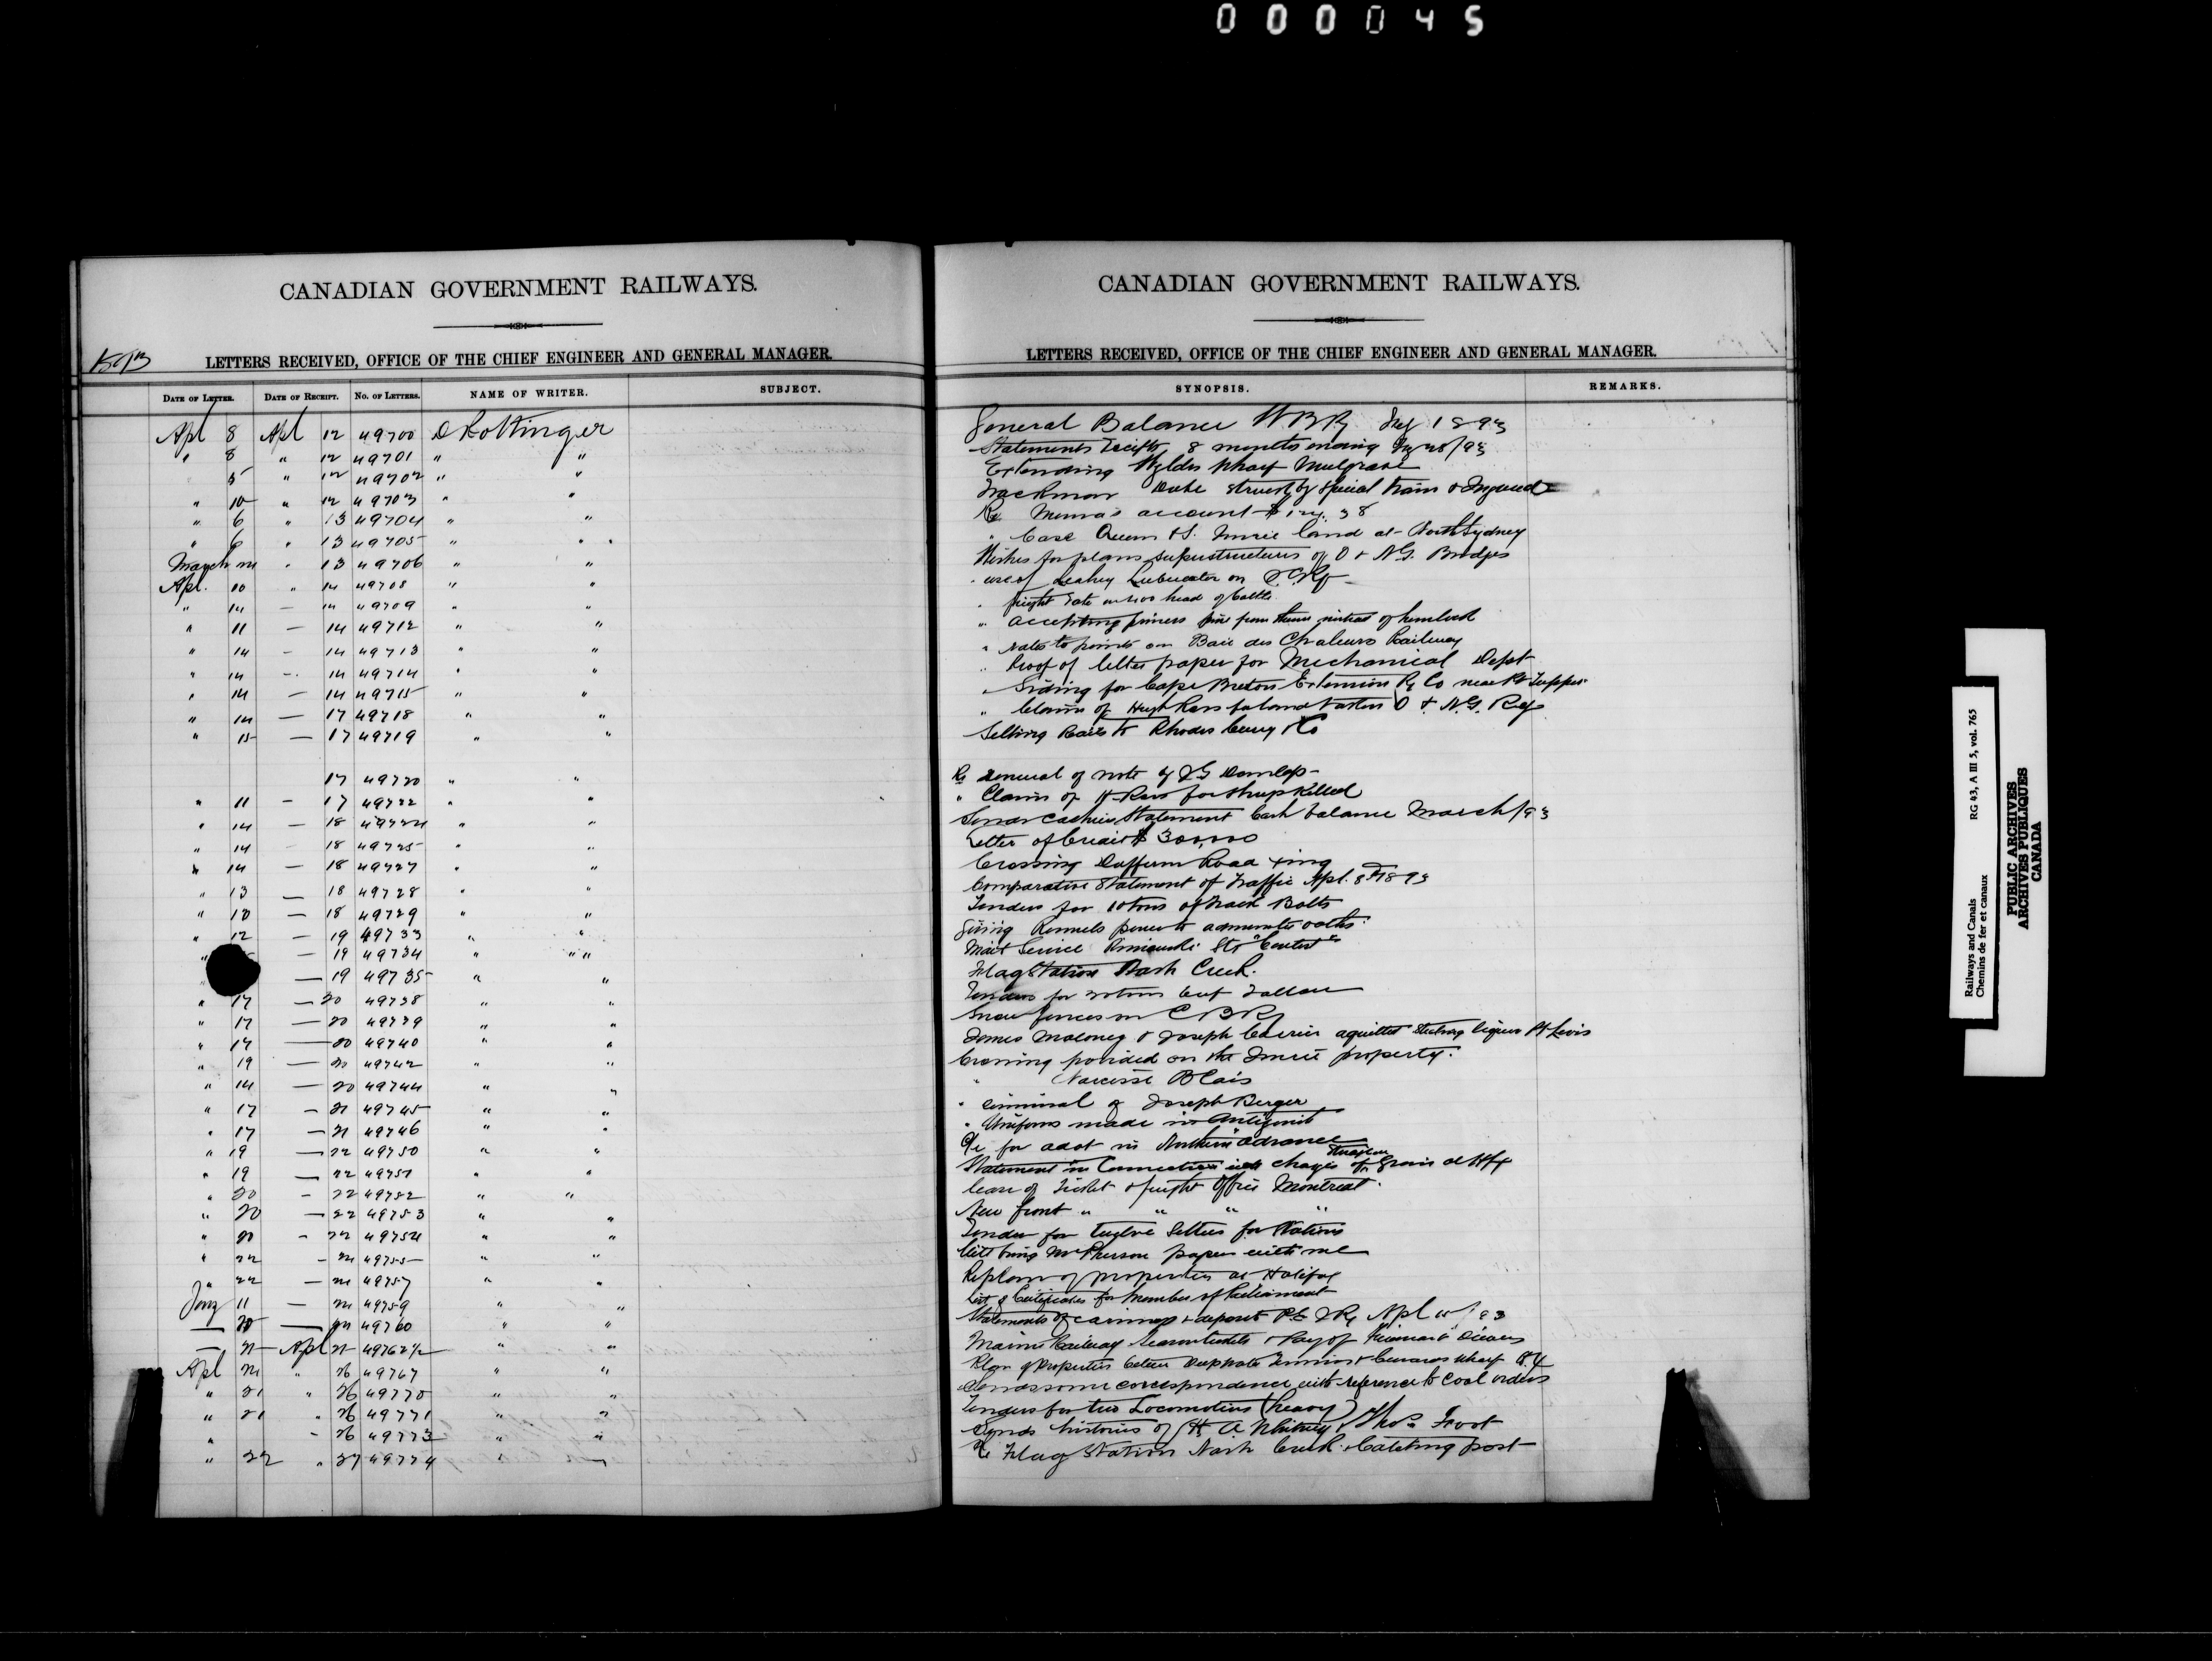 000045
CANADIAN GOVERNMENT RAILWAYS.
LETTERS RECEIVED, OFFICE OF THE CHIEF ENGINEER AND GENERAL MANAGER.
DATE OF LETTER. DATE OF RECEIPT. No. OF LETTERS. NAME OF WRITER. SUBJECT.
Apl 8 Apl 12 49700 D Pottinger
" 8 " 12 49701 " "
5 " 12 49702 " "
" 10 " 12 49703 " "
" 6 " 13 49704 " "
" 6 " 13 49705 " "
March " 13 49706 " "
Apl. 10 " 14 49708 " "
" 14 — 14 49709 " "
" 11 — 14 49712 " "
" 14 — 14 49713 " "
" 14 — 14 49714 " "
" 14 — 14 49715 " "
" 14 — 17 49718 " "
" 15 — 17 49719 " "
17 49720 " "
" 11 — 17 49722 " "
" 14 — 18 49724 " "
" 14 — 18 49725 " "
" 14 — 18 49727 " "
" 13 — 18 49728 " "
" 18 — 18 49729 " "
" 12 — 19 49733 " "
" — 19 49734 " "
" — 19 49735 " "
" 17 — 20 49738 " "
" 17 — 20 49739 " "
" 17 — 20 49740 " "
" 19 — 20 49742 " "
" 14 — 20 49744 " "
" 17 — 21 49745 " "
" 17 — 21 49746 " "
" 19 — 22 49750 " "
" 19 — 22 49751 " "
" 20 — 22 49752 " "
" 20 — 22 49753 " "
" 20 — 22 49754 " "
" 22 — 24 49755 " "
" 22 — 24 49757 " "
11 — 24 49759 " "
— 20 — 24 49760 " "
— Apl 49762½ " "
Apl " 26 49767 " "
" 21 " 26 49770 " "
" 21 " 26 49771 " "
" " 26 49773 " "
" 22 " 27 49774 " "
CANADIAN GOVERNMENT RAILWAYS.
LETTERS RECEIVED, OFFICE OF THE CHIEF ENGINEER AND GENERAL MANAGER.
SYNOPSIS. REMARKS.
General Balance 1893
Statements Receipts 8 months ending /93
Extending Wyldes Wharf Mulgrave
Trackman Duke struck by special train & Injured
Re account
" Case Queen vs. Imrie land at North Sydney
Wishes for plans superstructures of O & N.G. Bridges
" use of Leahey Lubricator on I.C.Ry
" freight rate on head of cattle
" accepting pine from them instead of hemlock
" rates to points on Baie des Chaleurs Railway
" Proof of letter paper for Mechanical Dept
" Siding for Cape Breton Extension Ry Co near Pt Tupper
" Claim of Hugh Ross for land taken O & N.G. Ry
Selling Rails to Rhodes Curry & Co
Re renewal of note of J G Dunlop
" Claim of H Ross for sheep killed
Sends Cashiers Statement Cash balance March/93
Letter of Credit $ 300,000
Crossing Dufferin Road
Comparative Statement of Traffic Apl. 8th 1893
Tenders for 10 tons of Track Bolts
Giving power to administer oaths
Mail Service Rimouski Str
Flag Station Nash Creek
Tenders for
Snow fences on C B Ry
James Maloney & Joseph acquitted stealing liquor Pt Levis
Crossing provided on the Imrie property.
" Narcisse Blais
" of Joseph Berger
" Uniforms made in Antigonish
for advt in Northern Advance
Statement in Connection with charges of Grain at Hfx
Lease of Ticket & freight Office Montreal
New front " " " "
Tender for twelve for Stations
Will bring McPherson papers with me
Re plan of properties at Halifax
List of Certificates for Member of Parliament
Statements of earnings & deposit P.E.I.Ry Apl 15/93
Plan of Properties between Deepwater Terminus & Cunards wharf
Sends some correspondence with reference to Coal orders
Tenders for two Locomotives (heavy)
Sends histories of H A Whitney & Thos Foot
Re Flag Station Nash Creek & Catching post
Railways and Canals
Chemins de fer et canaux
RG 43, A III 5, vol. 765
PUBLIC ARCHIVES
ARCHIVES PUBLIQUES
CANADA